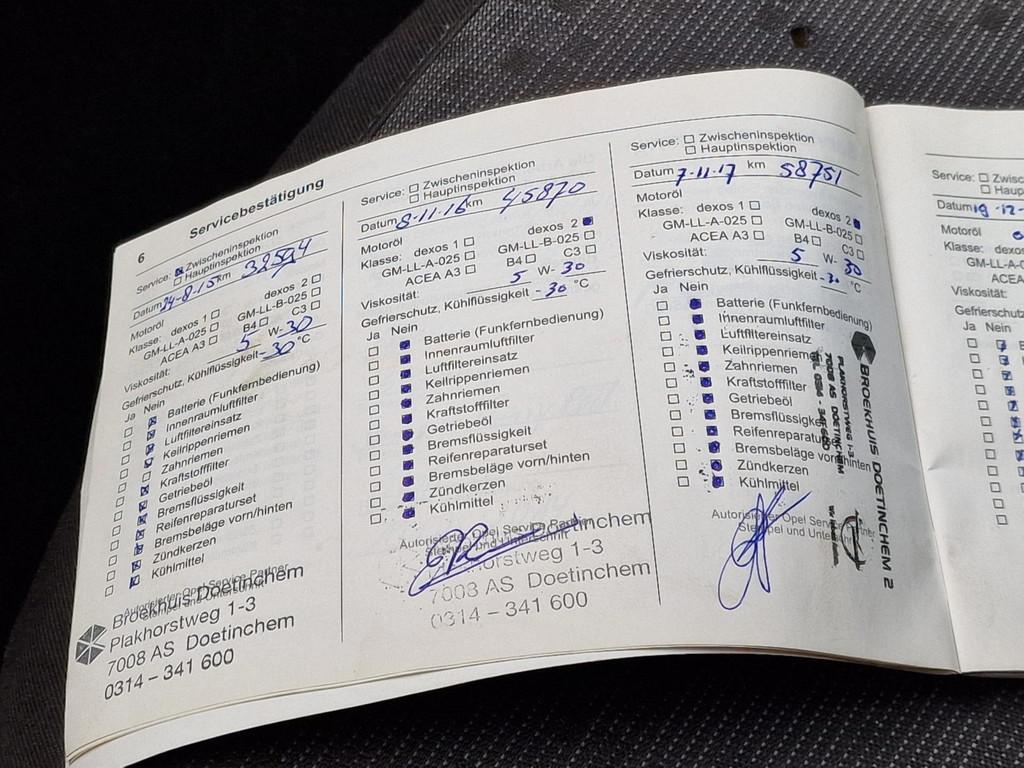 6
Servicebestätigung
Service: Zwischeninspektion
Hauptinspektion
Datum 24-8-15 km 32594
Motoröl
Klasse: dexos 1 dexos 2
GM-LL-A-025 GM-LL-B-025
ACEA A3 B4 C3
Viskosität: 5 W- 30
Gefrierschutz, Kühlflüssigkeit - 30 °C
Ja Nein
Batterie (Funkfernbedienung)
Innenraumluftfilter
Luftfiltereinsatz
Keilrippenriemen
Zahnriemen
Kraftstofffilter
Getriebeöl
Bremsflüssigkeit
Reifenreparaturset
Bremsbeläge vorn/hinten
Zündkerzen
Kühlmittel
Autorisierter Opel Service Partner
Stempel und Unterschrift
Broekhuis Doetinchem
Plakhorstweg 1-3
7008 AS Doetinchem
0314 - 341 600
Service: Zwischeninspektion
Hauptinspektion
Datum 8-11-16 km 45870
Motoröl
Klasse: dexos 1 dexos 2
GM-LL-A-025 GM-LL-B-025
ACEA A3 B4 C3
Viskosität: 5 W- 30
Gefrierschutz, Kühlflüssigkeit - 30 °C
Ja Nein
Batterie (Funkfernbedienung)
Innenraumluftfilter
Luftfiltereinsatz
Keilrippenriemen
Zahnriemen
Kraftstofffilter
Getriebeöl
Bremsflüssigkeit
Reifenreparaturset
Bremsbeläge vorn/hinten
Zündkerzen
Kühlmittel
Autorisierter Opel Service Partner
Stempel und Unterschrift
Doetinchem
orstweg 1-3
7008 AS Doetinchem
0314 - 341 600
Service: Zwischeninspektion
Hauptinspektion
Datum 7-11-17 km 58751
Motoröl
Klasse: dexos 1 dexos 2
GM-LL-A-025 GM-LL-B-025
ACEA A3 B4 C3
Viskosität: 5 W- 30
Gefrierschutz, Kühlflüssigkeit - 30 °C
Ja Nein
Batterie (Funkfernbedienung)
Innenraumluftfilter
Luftfiltereinsatz
Keilrippenriemen
Zahnriemen
Kraftstofffilter
Getriebeöl
Bremsflüssigke
Reifenreparatu
Bremsbeläge vorn/hinten
Zündkerzen
Kühlmittel
Autorisierter Opel Serv
Stempel und Unters
BROEKHUIS DOETINCHEM 2
PLAKHORSTWEG 1-3
7008 AS DOETINCHEM
TEL. 0314 - 341 600
Service: Zwisc
Haup
Datum 19-12-
Motoröl
Klasse: dexos
GM-LL-A-0
ACEA
Viskosität:
Gefrierschutz
Ja Nein